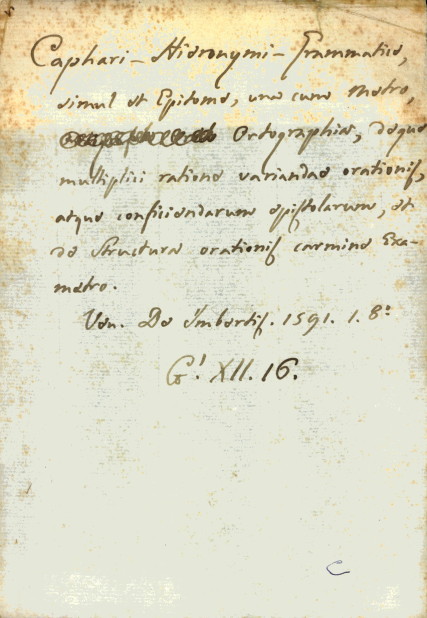 Caphari - Hieronymi - Grammatice,
simul et Epitome, una cum Metro,
Ortographia, deque
multiplici ratione variandae orationis,
atque conficiendarum epistolarum, et
de Structura orationis carmine Exa-
metro.
Ven. De Imbertis. 1591. 1. 8:
G! XII. 16.
C